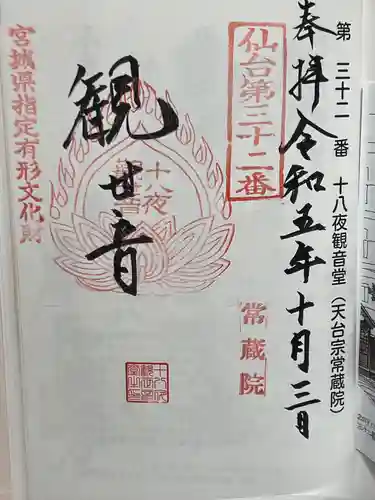 第 三十二 番 十八夜観音堂(天台宗常蔵院)
奉拝 令和五年十月三日
仙台第三十二番
常蔵院
十八夜
観世音
宮城県指定有形文化財